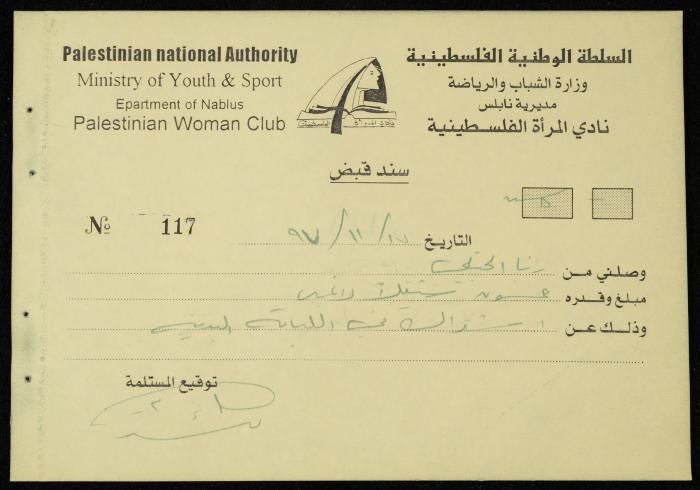 Palestinian national Authority
Ministry of Youth & Sport
Epartment of Nablus
Palestinian Woman Club
السلطة الوطنية الفلسطينية
وزارة الشباب والرياضة
مديرية نابلس
نادي المرأة الفلسطينية
نادي المرأة الفلسطينية
سند قبض
№ 117
التاريخ ١٧ / ١١ / ٩٧
وصلني من رنا
مبلغ وقدره خمسون
وذلك عن اشتراك في اللياقة البدنية
توقيع المستلمة